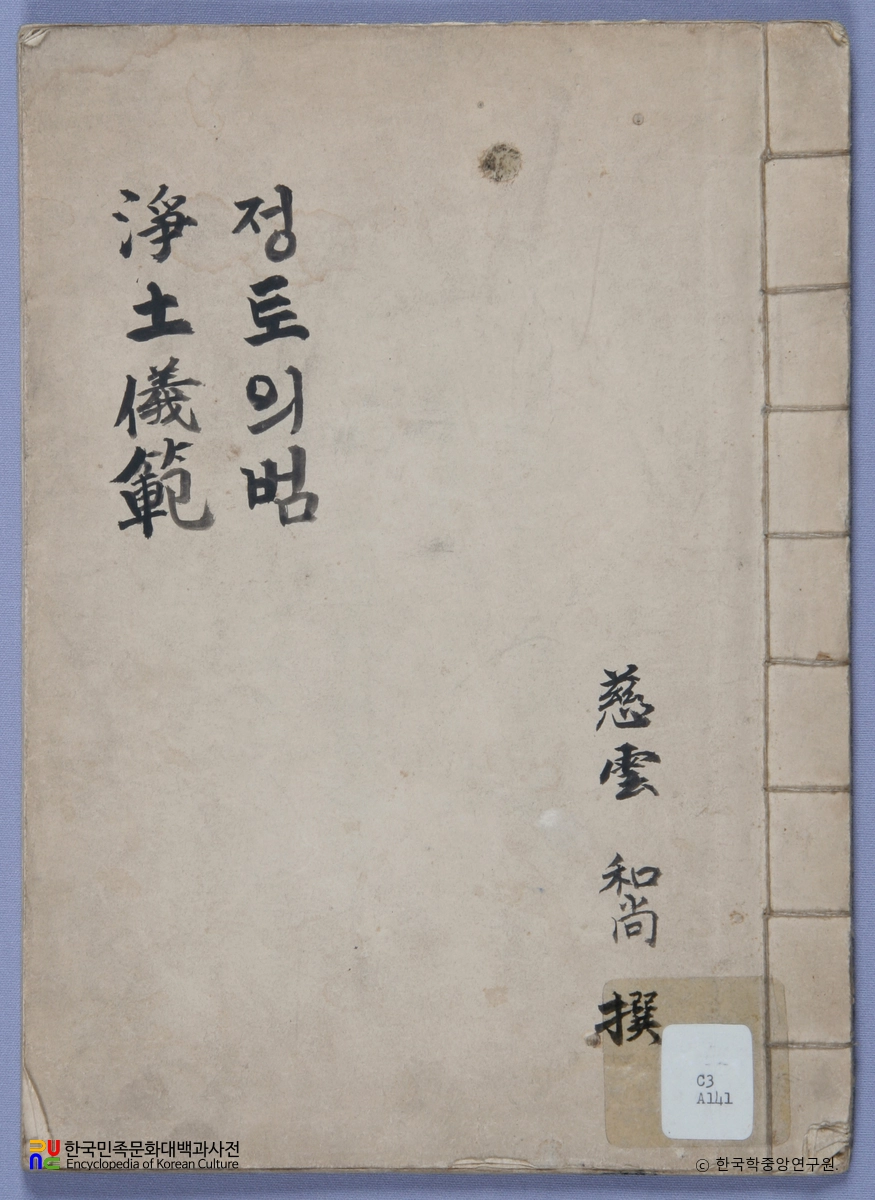 정토의범
淨土儀範
慈雲 和尚 撰
C3
A141
한국민족문화대백과사전
Encyclopedia of Korean Culture
© 한국학중앙연구원